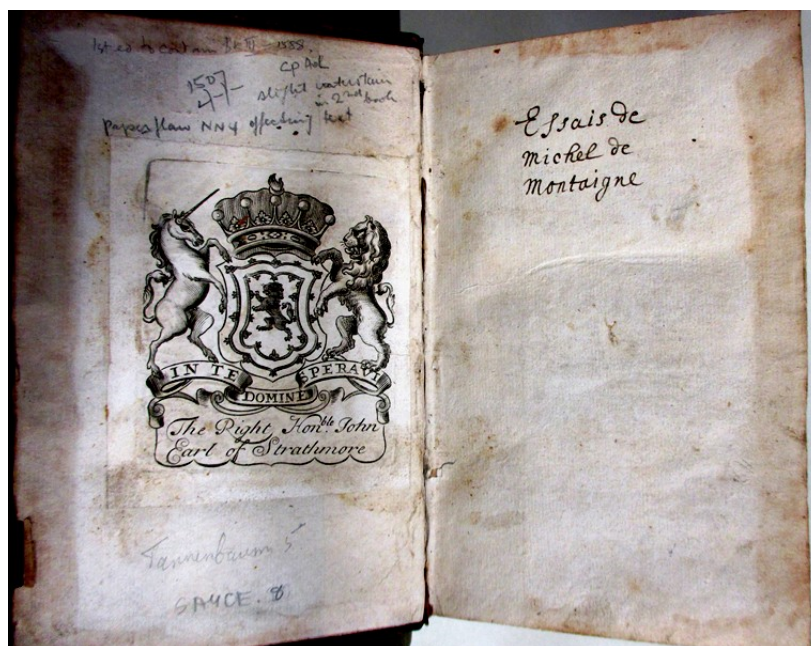 1st ed to contain Bk III - 1588.
cp Adl
1507
slight waterstain
in 2nd book
paper flaw NN4 affecting text
IN TE DOMINE SPERAVI
The Right Honble. John
Earl of Strathmore
Tannenbaum 5
SAYCE. 8
Essais de
michel de
Montaigne